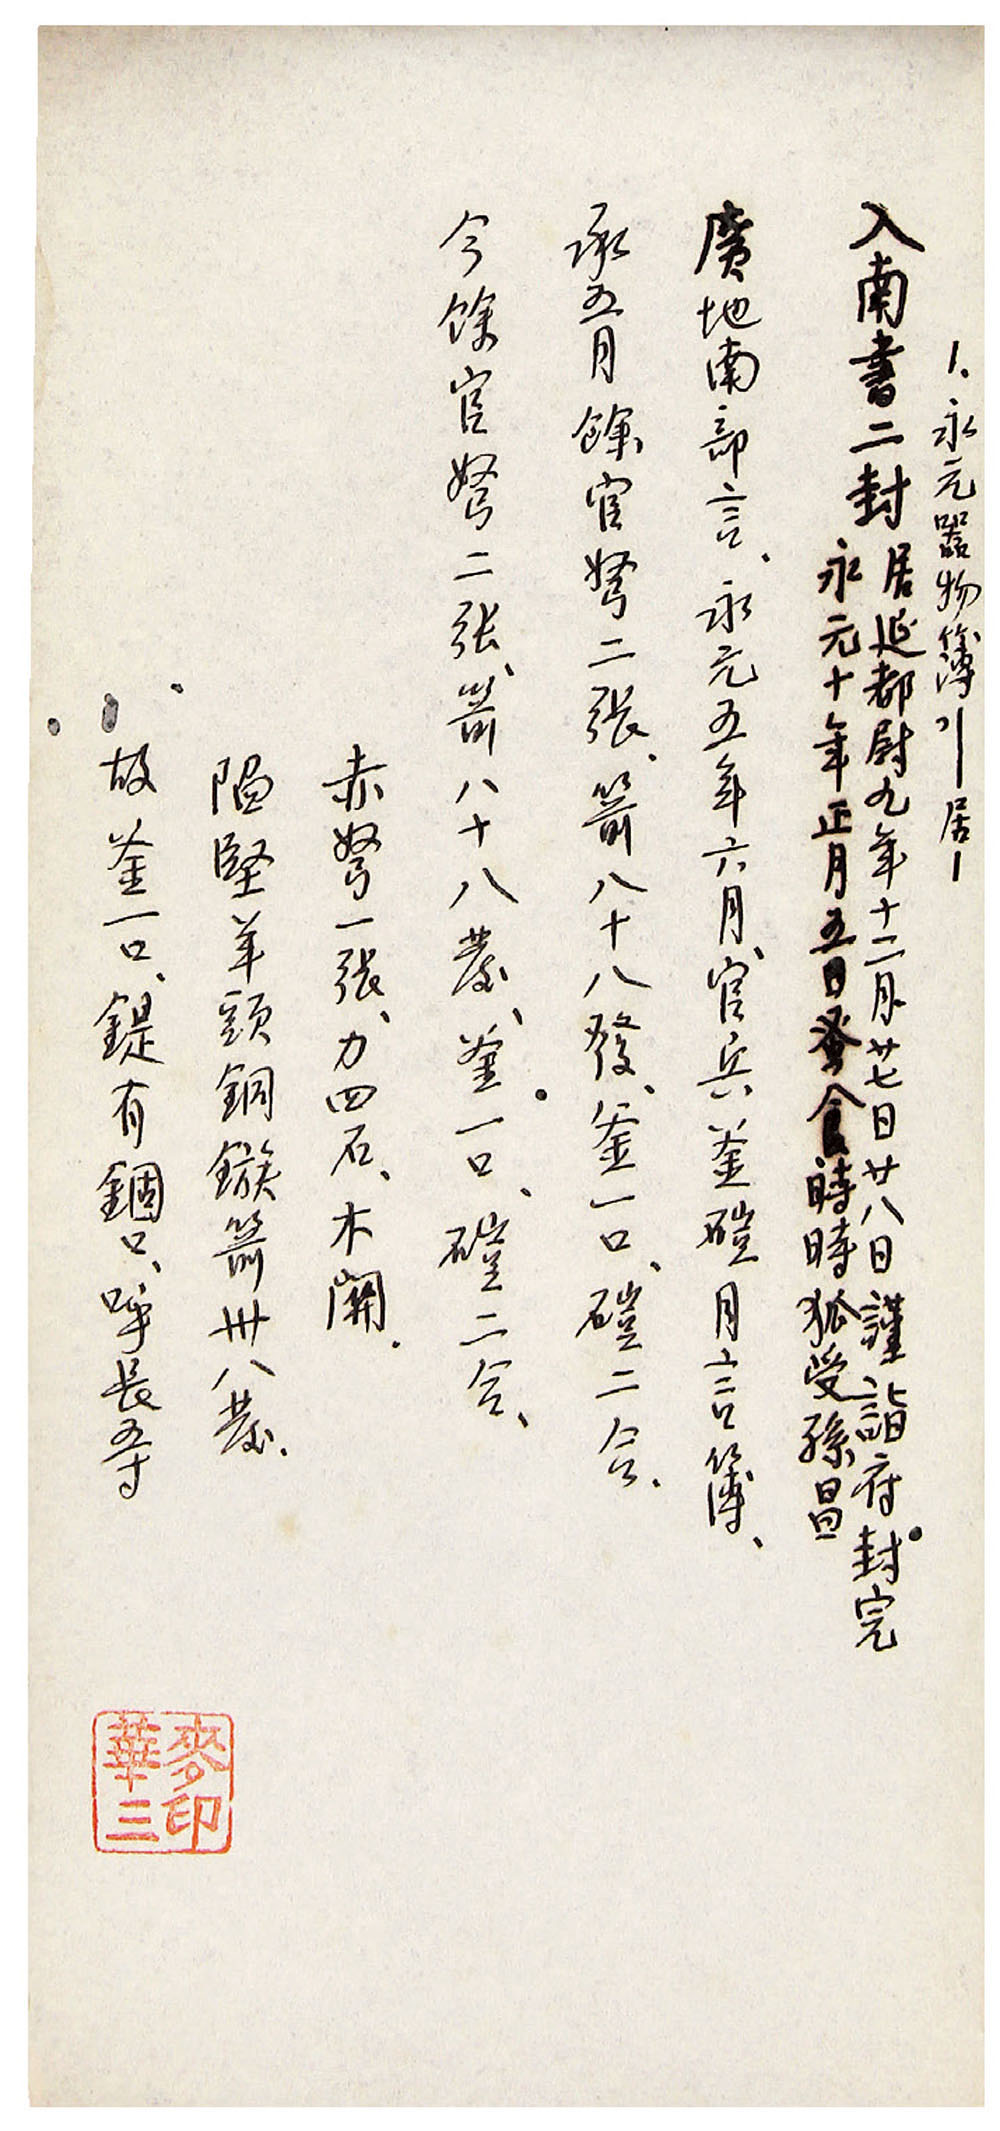 1、永元器物簿 居
入南書二封 居延都尉九年十二月廿七日廿八日謹詣府封完
永元十年正月五日蚤食時時狐受孫昌
廣地南部言、永元五年六月、官兵釜磑月言簿、
承五月餘官弩二張、箭八十八發、釜一口、磑二合、
今餘官弩二張、箭八十八發、釜一口、磑二合、
赤弩一張、力四石、木關、
陷堅羊頭銅鍭箭卌八發、
故釜一口、鍉有錮口、呼長五寸
麥華三印